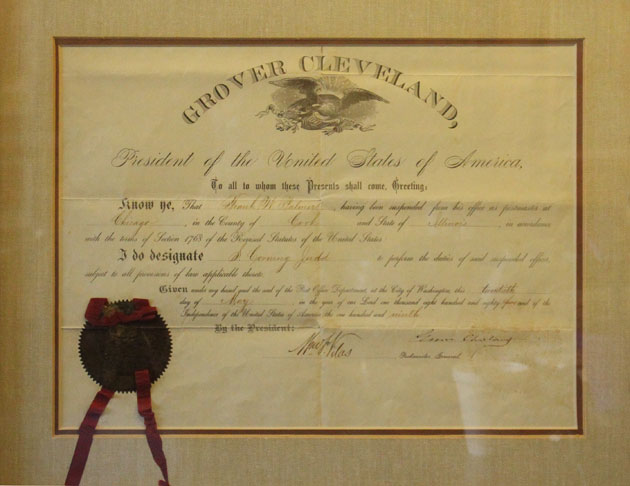 GROVER CLEVELAND,
President of the United States of America,
To all to whom these Presents shall come, Greeting:
Know ye, That Frank W. Palmer, having been suspended from his office as postmaster at
Chicago, in the County of Cook and State of Illinois, in accordance
with the terms of Section 1768 of the Revised Statutes of the United States
I do designate S. Corning Judd to perform the duties of said suspended officer,
subject to all provisions of law applicable thereto.
Given under my hand and the seal of the Post Office Department, at the City of Washington, this twentieth
day of May in the year of our Lord one thousand eight hundred and eighty five and of the
Independence of the United States of America the one hundred and ninth
By the President:
Wm F. Vilas Grover Cleveland
Postmaster General